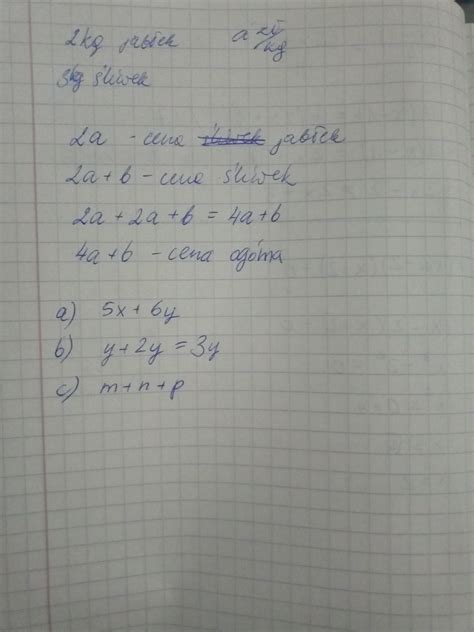 2kg jabłek a zł/kg
3kg śliwek
2a - cena śliwek jabłek
2a + b - cena śliwek
2a + 2a + b = 4a + b
4a + b - cena ogólna
a) 5x + 6y
b) y + 2y = 3y
c) m + n + p